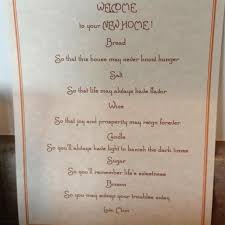 WELCOME
to your NEW HOME!
Bread
So that this house may never know hunger
Salt
So that life may always have flavor
Wine
So that joy and prosperity may reign forever
Candle
So you'll always have light to banish the dark times
Sugar
So you'll remember life's sweetness
Broom
So you may sweep your troubles away